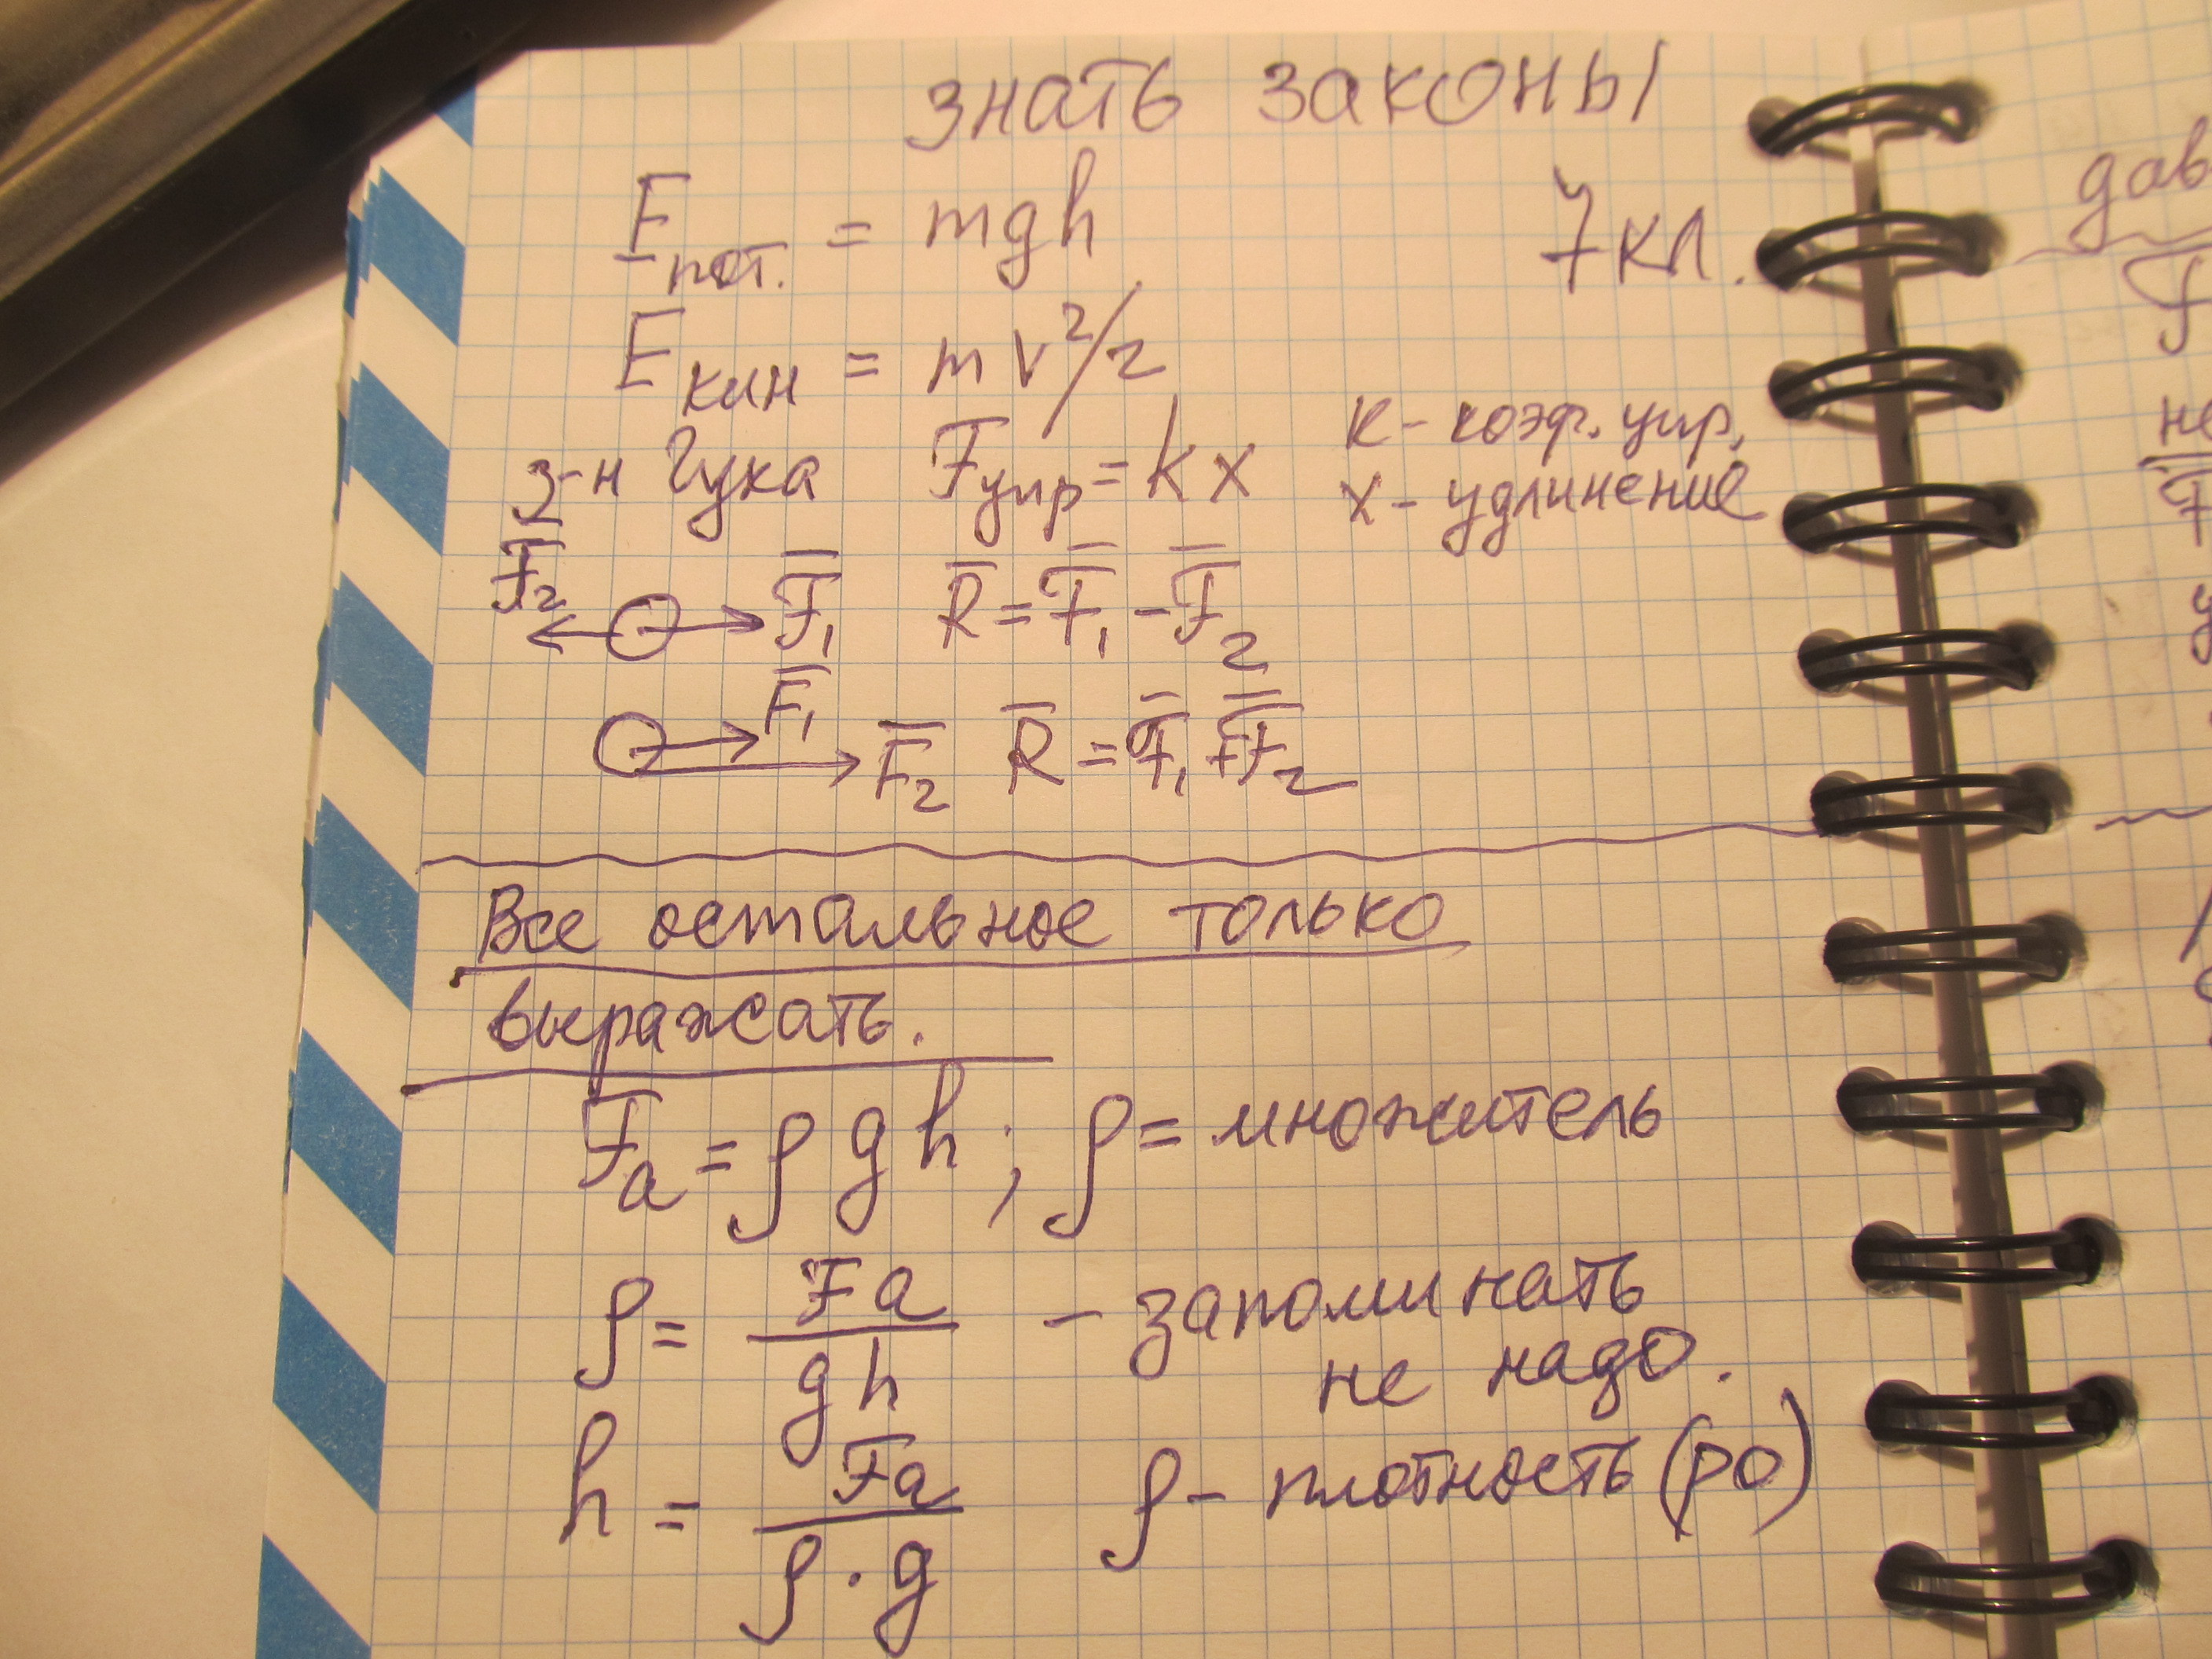 знать законы
Eпот. = mgh
7 кл.
Eкин = mv²/2
з-н Гука Fупр = kx
k - коэф. упр.
x - удлинение
F̅₂ F̅₁ R̅ = F̅₁ - F̅₂
F̅₁
F̅₂ R̅ = F̅₁ + F̅₂
Все остальное только
выражать.
Fa = ρgh; ρ = множитель
ρ = Fa / gh - запоминать
не надо.
h = Fa / ρ·g ρ - плотность (ро)
дав